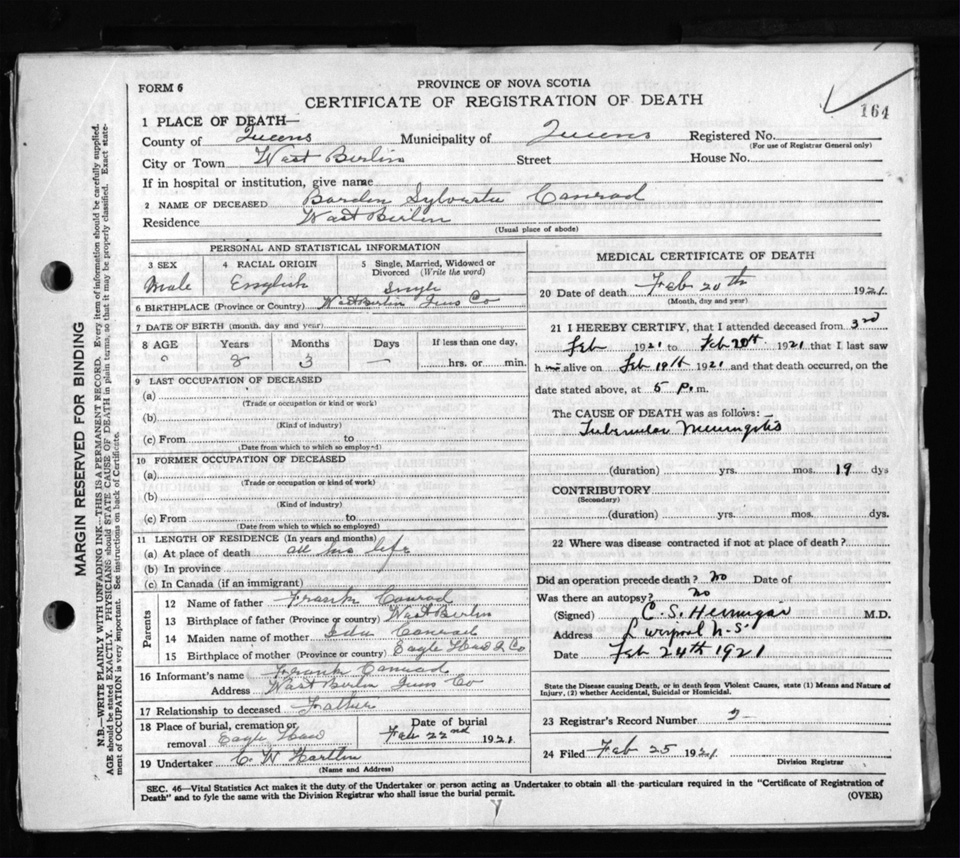 164
FORM 6
PROVINCE OF NOVA SCOTIA
CERTIFICATE OF REGISTRATION OF DEATH
1 PLACE OF DEATH—
County of Queens Municipality of Queens Registered No.
(For use of Registrar General only)
City or Town West Berlin Street House No.
If in hospital or institution, give name
2 NAME OF DECEASED Borden Sylvester Conrad
Residence West Berlin
(Usual place of abode)
PERSONAL AND STATISTICAL INFORMATION
3 SEX Male
4 RACIAL ORIGIN English
5 Single, Married, Widowed or Divorced (Write the word) Single
6 BIRTHPLACE (Province or Country) West Berlin Quns Co
7 DATE OF BIRTH (month, day and year)
8 AGE Years Months Days If less than one day,
8 3 — hrs. or min.
9 LAST OCCUPATION OF DECEASED
(a)
(Trade or occupation or kind or work)
(b)
(Kind of industry)
(c) From to
(Date from which to which so employed)
10 FORMER OCCUPATION OF DECEASED
(a)
(Trade or occupation or kind of work)
(b)
(Kind of industry)
(c) From to
(Date from which to which so employed)
11 LENGTH OF RESIDENCE (In years and months)
(a) At place of death all his life
(b) In province
(c) In Canada (if an immigrant)
Parents
12 Name of father Frank Conrad
13 Birthplace of father (Province or country) West Berlin
14 Maiden name of mother Conrad
15 Birthplace of mother (Province or country) Eagle Head Q Co
16 Informant's name Frank Conrad
Address West Berlin Quns Co
17 Relationship to deceased Father
18 Place of burial, cremation or removal Eagle Head
Date of burial Feb 22nd 1921
19 Undertaker C. W Hartlin
(Name and Address)
MEDICAL CERTIFICATE OF DEATH
20 Date of death Feb 20th 1921
(Month, day and year)
21 I HEREBY CERTIFY, that I attended deceased from 3rd
Feb 1921 to Feb 20th 1921 that I last saw
h im alive on Feb 19th 1921 and that death occurred, on the
date stated above, at 5 p.m.
The CAUSE OF DEATH was as follows:
Tubercular Meningitis
(duration) yrs. mos. 19 dys
CONTRIBUTORY
(Secondary)
(duration) yrs. mos. dys.
22 Where was disease contracted if not at place of death?
Did an operation precede death? No Date of
Was there an autopsy? No
(Signed) C. S. Hennigar M.D.
Address Liverpool N.S.
Date Feb 24th 1921
State the Disease causing Death, or in death from Violent Causes, state (1) Means and Nature of
Injury, (2) whether Accidental, Suicidal or Homicidal.
23 Registrar's Record Number
24 Filed Feb 25 1921
Division Registrar
SEC. 46—Vital Statistics Act makes it the duty of the Undertaker or person acting as Undertaker to obtain all the particulars required in the "Certificate of Registration of
Death" and to fyle the same with the Division Registrar who shall issue the burial permit.
(OVER)
MARGIN RESERVED FOR BINDING
N.B.—WRITE PLAINLY WITH UNFADING INK—THIS IS A PERMANENT RECORD. Every item of information should be carefully supplied.
AGE should be stated EXACTLY. PHYSICIANS should STATE CAUSE OF DEATH in plain terms, so that it may be properly classified. Exact state-
ment of OCCUPATION is very important. See instructions on back of Certificate.